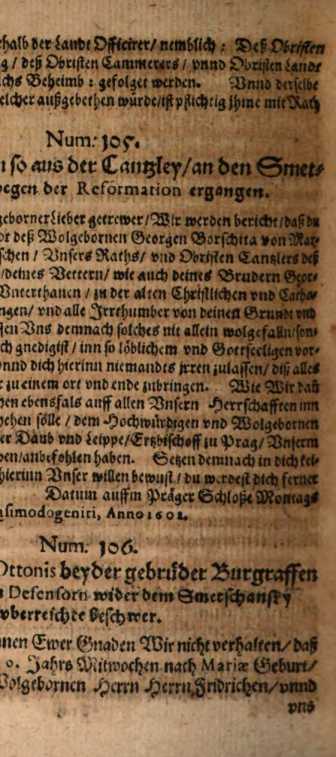 halb der Landt Officirer/ nemblich: Deß Obristen
g/ deß Obristen Cammerers/ vnnd Obristen Landt
chs Beheimb: gefolget werden. Vnnd derselbe
elcher außgebethen würde/ ist pflichtig Ihme mit Rath
Num: 105.
n so aus der Cantzley/an den Smet-
wegen der Reformation ergangen.
geborner Lieber getrewer/ Wir werden bericht/ daß du
or deß Wolgebornen Georgen Borschita von Mar-
schen/ Vnsers Raths/ vnd Obristen Cantzlers deß
/deines Vettern/ wie auch deines Brudern Geor-
Vnterthanen/ zu der alten Christlichen vnd Catho-
ngen/ vnd alle Irrethumber von deinen Grundt vnd
sen Vns demnach solches nit allein wolgefalln/ son-
ch gnedigist/ inn so löblichem vnd Gottseeligen vor-
nnd dich hierinn niemandts jrren zulassen/ diß alles
r zu einem ort vnd ende zubringen. Wie Wir dan
hen ebensfals auff allen Vnsern Herrschafften inn
hehen sölle/ dem Hochwürdigen vnd Wolgebornen
er Daub vnd Leippe/ Ertzbischoff zu Prag/ Vnserm
ben/anbefohlen haben. Setzen demnach in dich kei-
hierinn Vnser willen bewust/ du werdest dich ferner
Datum auffm Präger Schloße Montags
asimodogeniti, Anno 1602.
Num: 106.
Ottonis beyder gebrüder Burgraffen
n Defensorn wider dem Smetschansky
vberreichte Beschwer.
nnen Ewer Gnaden Wir nicht verhalten/ daß
0. Jahrs Mitwochen nach Mariæ Geburt/
Wolgebornen Herrn Herrn Fridrichen/ vnnd
vns